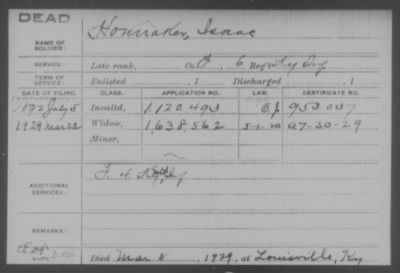 DEAD
NAME OF SOLDIER: Honnaker, Isaac
SERVICE: Late rank, Co. 6 Reg't Ky Inf
TERM OF SERVICE: Enlisted , 1 Discharged , 1
DATE OF FILING. CLASS. APPLICATION NO. LAW. CERTIFICATE NO.
1892 July 5 Invalid, 1.120.493 953.037
1929 Mar 22 Widow, 1.638.562 5-1-20 A7-30-29
Minor,
ADDITIONAL SERVICES:
REMARKS:
Died Mar 5, 1929, at Louisville, Ky